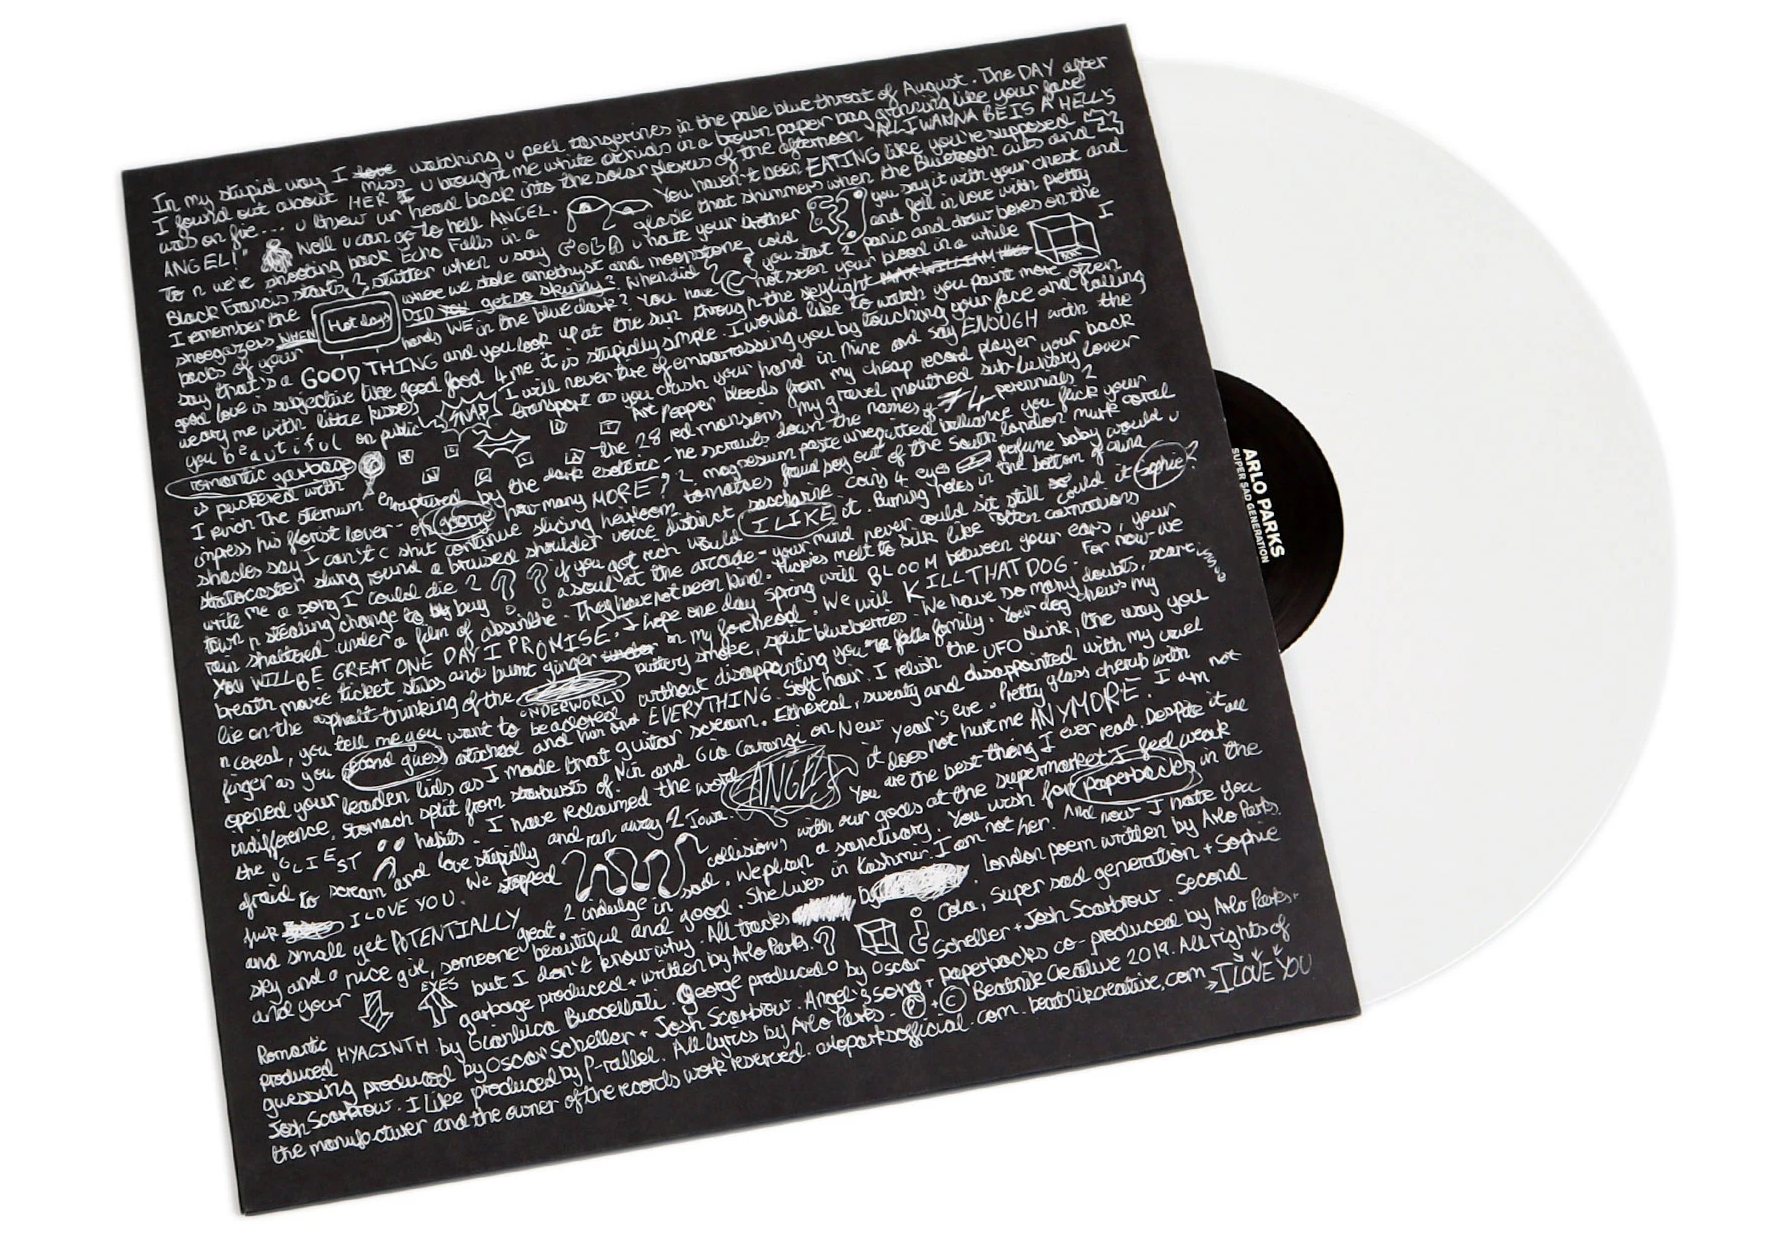 In my stupid way I love miss watching u peel tangerines in the pale blue throat of August. The DAY after
I found out about HER u brought me white orchids in a brown paper bag grinning like your face
was on fire.... u threw ur head back into the solar plexus of the afternoon "ALL I WANNA BE IS A HELL'S
ANGEL!" Well u can go to hell ANGEL. You haven't been EATING like you're supposed
To n we're shooting back Echo Falls in a glade that shimmers when the Bluetooth cuts and
Black Francis starts 2 stutter when u say COLA u hate your brother you say it with your chest and
I remember the Hot days where we stole amethyst and moonstone cold and fell in love with pretty
shoegazers WHEN DID YOU get so skinny? When did you start 2 panic and draw boxes on the
backs of your hands WE in the blue dark? You have not seen your blood in a while I
say that's a GOOD THING and you look up at the sun through the skylight MAX WILLIAM
good love is subjective like good food 4 me it is stupidly simple. I would like to watch you paint more often
weary me with little kisses SNAP I will never tire of embarrassing you by touching your face and calling
you beautiful on public transport as you crush your hand in mine and say ENOUGH with the
romantic garbage Art Pepper bleeds from my cheap record player your back
is puckered with the 28 red mansions, my gravel mouthed sub-luxury lover
I pinch the sternum enraptured by the dark esoteric - he scrawls down the names of 74 perennials 2
impress his florist lover - oh george how many MORE?? magnesium paste unrequited brilliance you fuck your
shades say I can't c shit continue slicing heirloom tomatoes fraud boy out of the South London murk coral
stratocaster slung round a bruised shoulder voice distinct saccharine coins 4 eyes perfume baby would u
write me a song I could die 2 ?? if you got rich would I LIKE it. Burning holes in the bottom of aura
town n stealing change to buy a soul at the arcade - your mind never could sit still could it Sophie?
rain shattered under a film of absinthe. They have not been kind. Hickies melt to silk like rotten carnations
YOU WILL BE GREAT ONE DAY I PROMISE. I hope one day spring will BLOOM between your ears, your
breath movie ticket stubs and burnt ginger in my forehead. We will KILL THAT DOG. For now - we
lie on the asphalt thinking of the UNDERWORLD puttery smoke, split blueberries. We have so many doubts, scare
n cereal, you tell me you want to be adored without disappointing you family. Your dog chews my
finger as you second guess attached and run and EVERYTHING Soft hour. I relish the UFO blink, the way you
opened your leaden lids as I made that guitar scream. Ethereal, sweaty and disappointed with my cruel
indifference, stomach split from starbursts of Mir and Gio Carange on New Year's eve. Pretty glass cherub with
the UGLIEST habits. I have reclaimed the word ANGELS it does not hurt me ANYMORE. I am not
afraid to scream and love stupidly and run away 2 Iowa. You are the best thing I ever read. Despite it all
fuck I LOVE YOU. We stopped collisions with our gods at the supermarket I feel weak
and small yet POTENTIALLY great. 2 indulge in sad. We plan a sanctuary. You wish for paperbacks in the
sky and a nice girl, someone beautiful and good. She lives in Kashmir. I am not her. And now I hate you
and your EYES but I don't know why. All tracks by London poem written by Arlo Parks.
Romantic garbage produced + written by Arlo Parks. Cola, Super sad generation + Sophie
produced HYACINTH by Gianluca Buccellati. George produced by Oscar Scheller + Josh Scarbrow. Second
guessing produced by Oscar Scheller + Josh Scarbrow. Angel's song + paperbacks co-produced by Arlo Parks +
Josh Scarbrow. I Like produced by P-rallel. All lyrics by Arlo Parks - ℗ + © Beatnik Creative 2019. All rights of
the manufacturer and the owner of the records work reserved. arloparksofficial.com. beatnikcreative.com I LOVE YOU
ARLO PARKS
SUPER SAD GENERATION